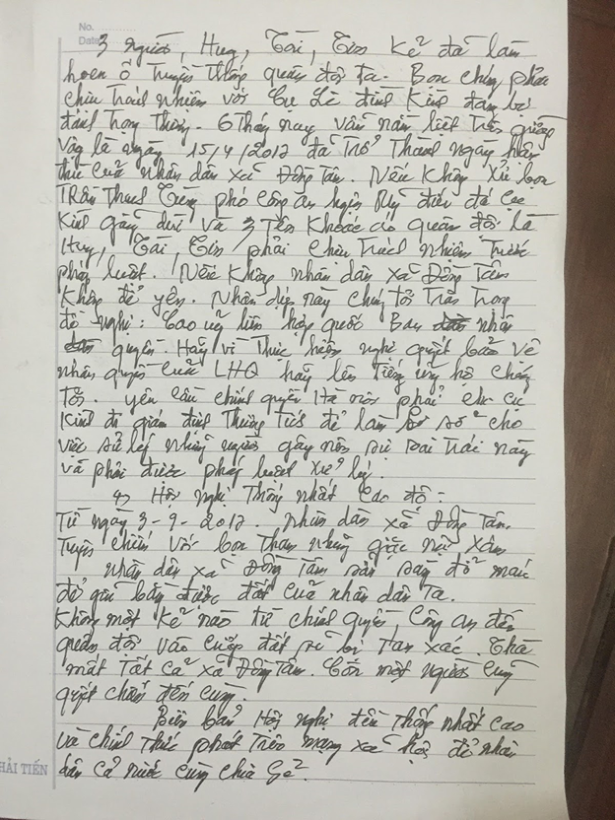 No.
Date
3 người, Huy, Tài, Tiến kẻ đã làm
hoen ố truyền thống quân đội ta. Bọn chúng phải
chịu trách nhiệm với cụ Lê Đình Kình đang bị
trọng thương. 6 tháng nay vẫn nằm liệt trên giường
vậy là ngày 15/4/2017 đã trở thành ngày
thù của nhân dân xã Đồng Tâm. Nếu không xử bọn
Trần Thanh Tùng phó công an huyện Mỹ Đức đá cụ
Kình gãy đùi và 3 tên khoác áo quân đội là
Huy, Tài, Tiến phải chịu trách nhiệm trước
pháp luật. Nếu không nhân dân xã Đồng Tâm
không để yên. Nhân dịp này chúng tôi trân trọng
đề nghị: Cao uỷ liên hợp quốc Ban nhân
quyền. Hãy vì thực hiện nghị quyết bảo vệ
nhân quyền của LHQ hãy lên tiếng ủng hộ chúng
tôi. yêu cầu chính quyền Hà nội phải cho cụ
Kình đi giám định thương tích để làm cơ sở cho
việc sử lý những người gây nên sự sai trái này
và phải được pháp luật xử lý.
Hội nghị thống nhất cao độ:
Từ ngày 3-9-2017. Nhân dân xã Đồng Tâm.
Tuyên chiến với bọn tham nhũng giặc nội xâm
nhân dân xã Đồng Tâm sẵn sàng đổ máu
để giữ bằng được đất của nhân dân ta.
Không một kẻ nào từ chính quyền, Công an đến
quân đội vào cướp đất sẽ bị tan xác. Thà
mất tất cả xã Đồng Tâm. Còn một người cũng
quyết chiến đến cùng.
Biên bản Hội nghị đến thống nhất cao
và chính thức phát trên mạng xã hội để nhân
dân cả nước cùng chia sẻ.
HẢI TIẾN